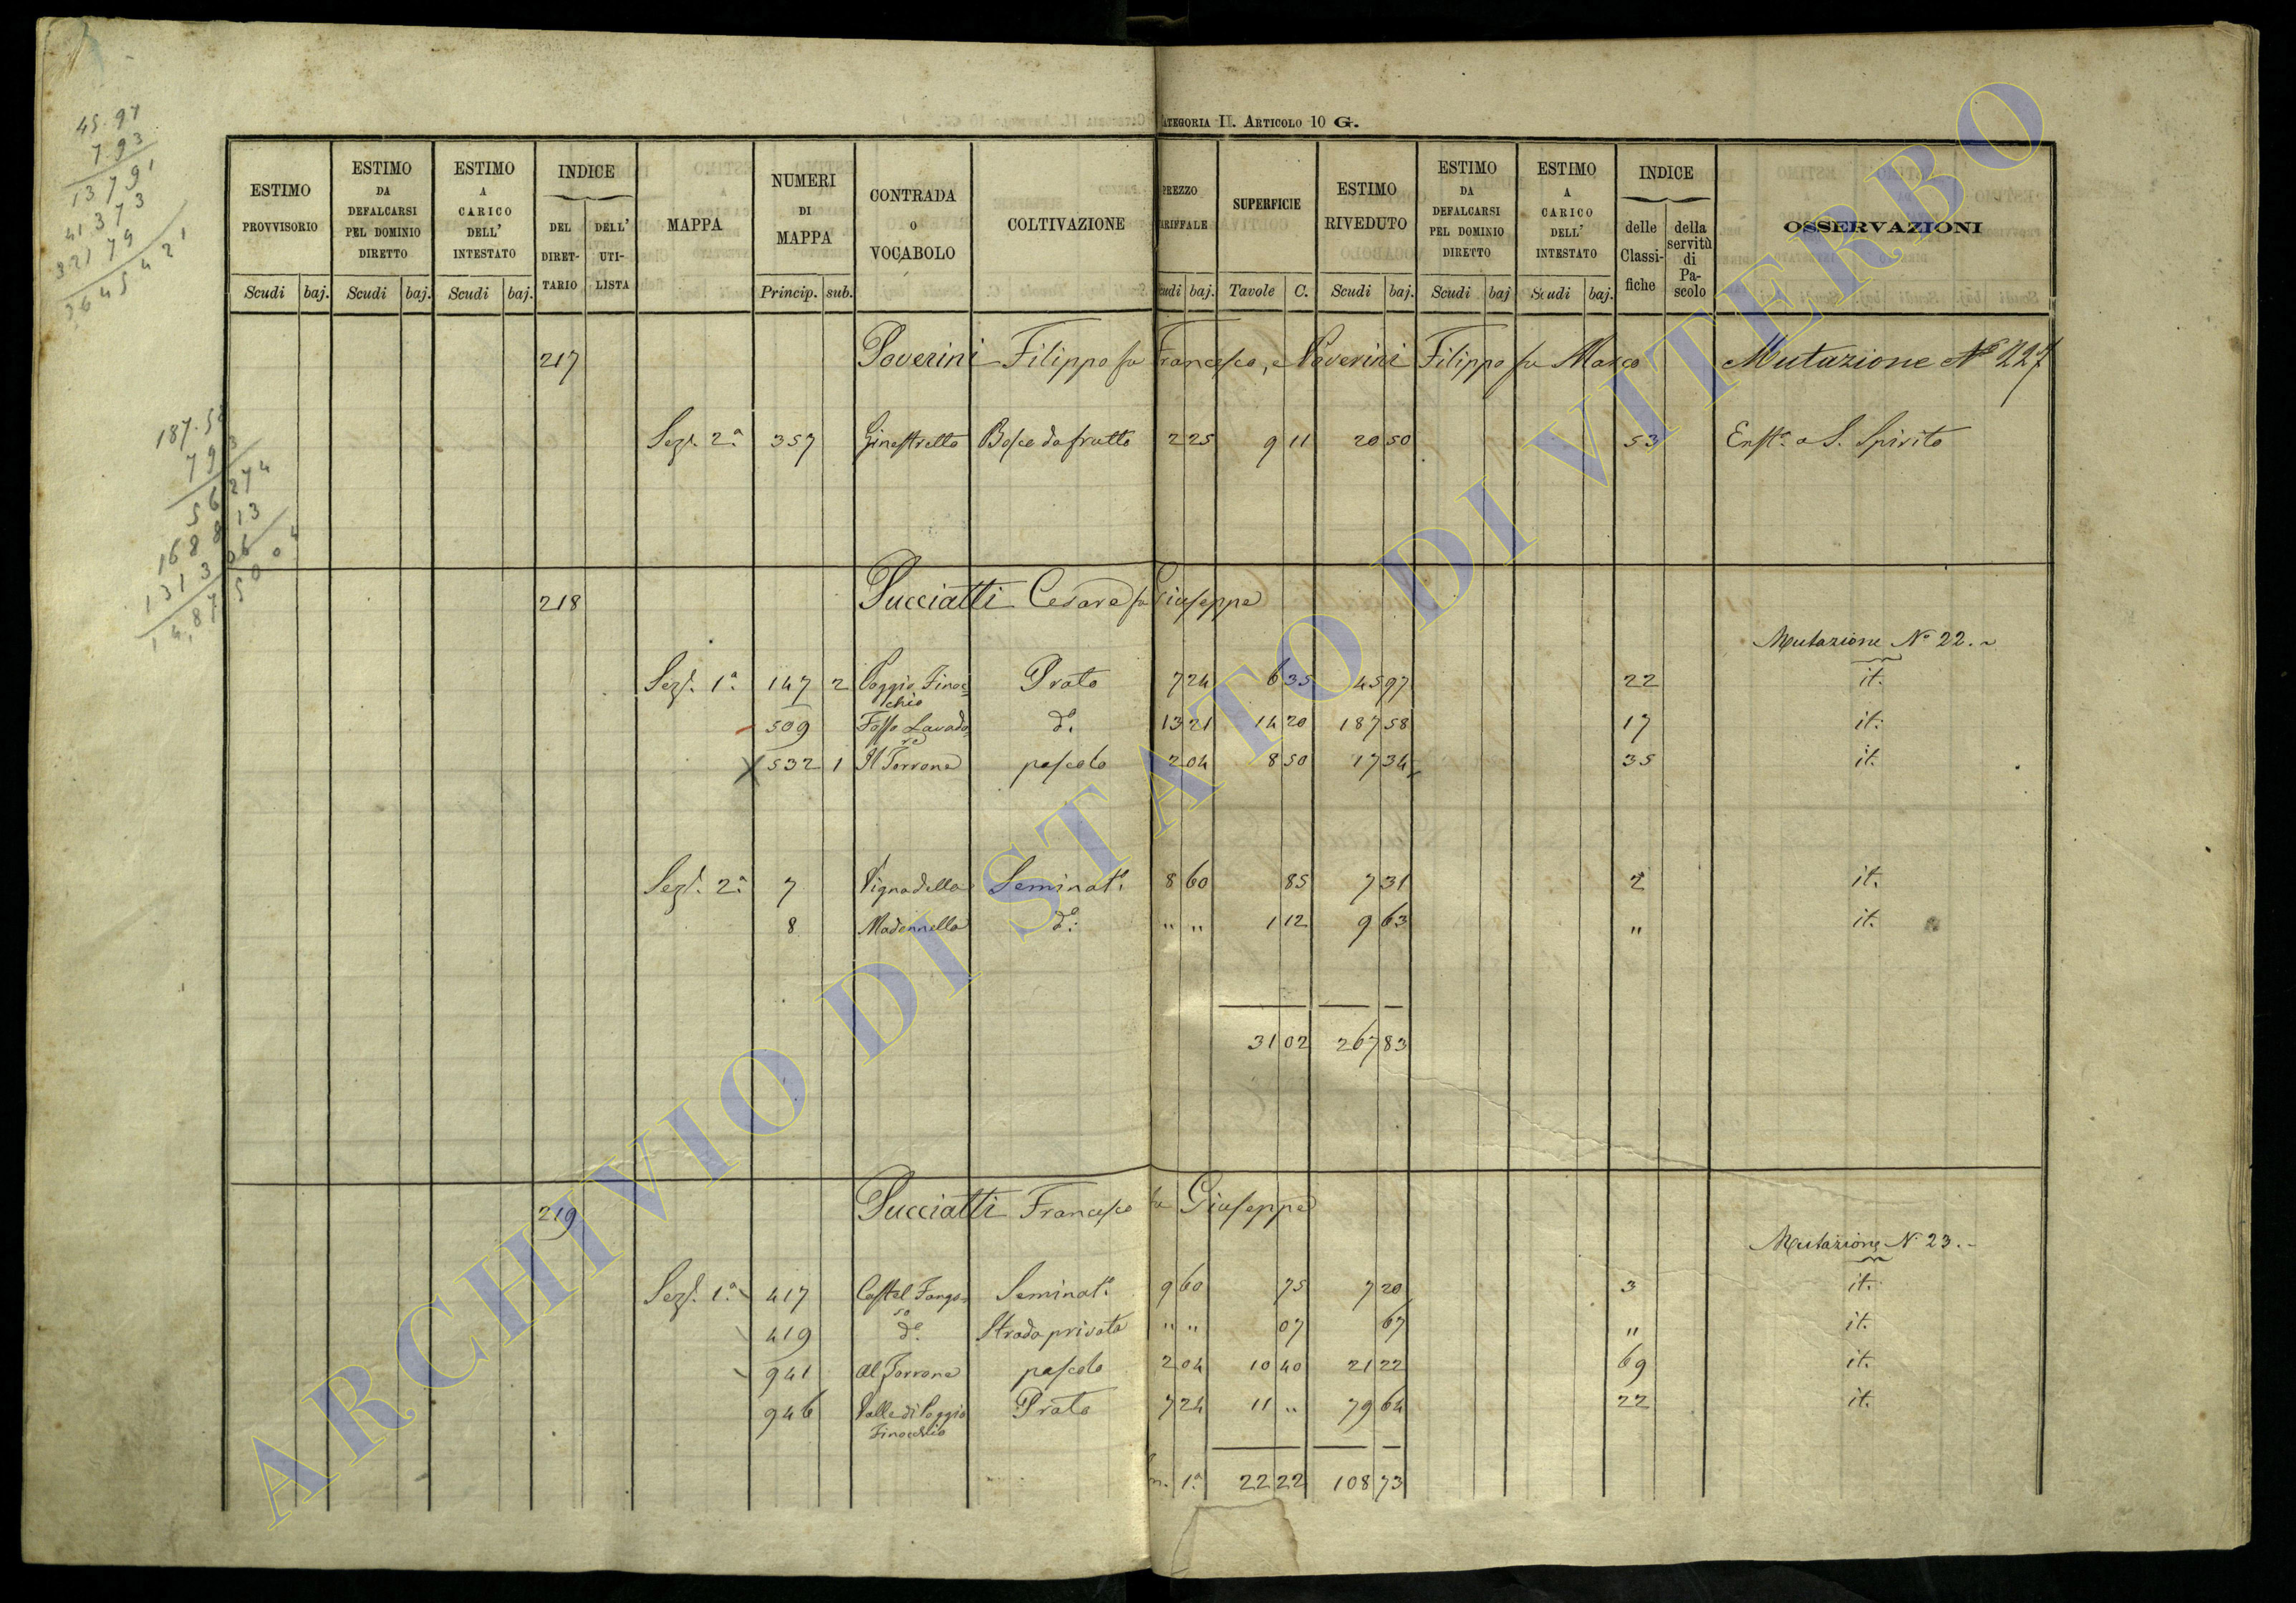 CATEGORIA II. ARTICOLO 10 G.
ESTIMO PROVVISORIO Scudi baj.
ESTIMO DA DEFALCARSI PEL DOMINIO DIRETTO Scudi baj.
ESTIMO A CARICO DELL' INTESTATO Scudi baj.
INDICE DEL DIRET-TARIO DELL' UTI-LISTA
MAPPA
NUMERI DI MAPPA Princip. sub.
CONTRADA o VOCABOLO
COLTIVAZIONE
PREZZO TARIFFALE Scudi baj.
SUPERFICIE Tavole C.
ESTIMO RIVEDUTO Scudi baj.
ESTIMO DA DEFALCARSI PEL DOMINIO DIRETTO Scudi baj
ESTIMO A CARICO DELL' INTESTATO Scudi baj.
INDICE delle Classi-fiche della servitù di Pa-scolo
OSSERVAZIONI
45.97
7.93
13791
41373
32179
3645421
187.58
793
56274
168813
131306
14,875004
217 Poverini Filippo fu Francesco, e Poverini Filippo fu Marco Mutazione N° 227
Sez. 2ª 357 Ginestretto Bosco da frutto 2 25 9 11 20 50 53 Enft. a S. Spirito
218 Pucciatti Cesare fu Giuseppe
Mutazione N° 22.
Sez. 1ª 147 2 Poggio Finoc=chio Prato 7 24 6 35 45 97 22 it.
509 Fosso Lavado=re d°. 13 21 14 20 187 58 17 it.
532 1 Il Torrone pascolo 2 04 8 50 17 34 35 it.
Sez. 2ª 7 Vigna della Seminat°. 8 60 85 7 31 2 it.
8 Madonnella d°. " " 1 12 9 63 " it.
31 02 267 83
219 Pucciatti Francesco fu Giuseppe
Mutazione N° 23.
Sez. 1ª 417 Castel Fango=so Seminat°. 9 60 75 7 20 3 it.
419 d°. Strada privata " " 07 67 " it.
941 Al Torrone pascolo 2 04 10 40 21 22 69 it.
946 Valle di Poggio Finocchio Prato 7 24 11 " 79 64 22 it.
1ª 22 22 108 73
ARCHIVIO DI STATO DI VITERBO